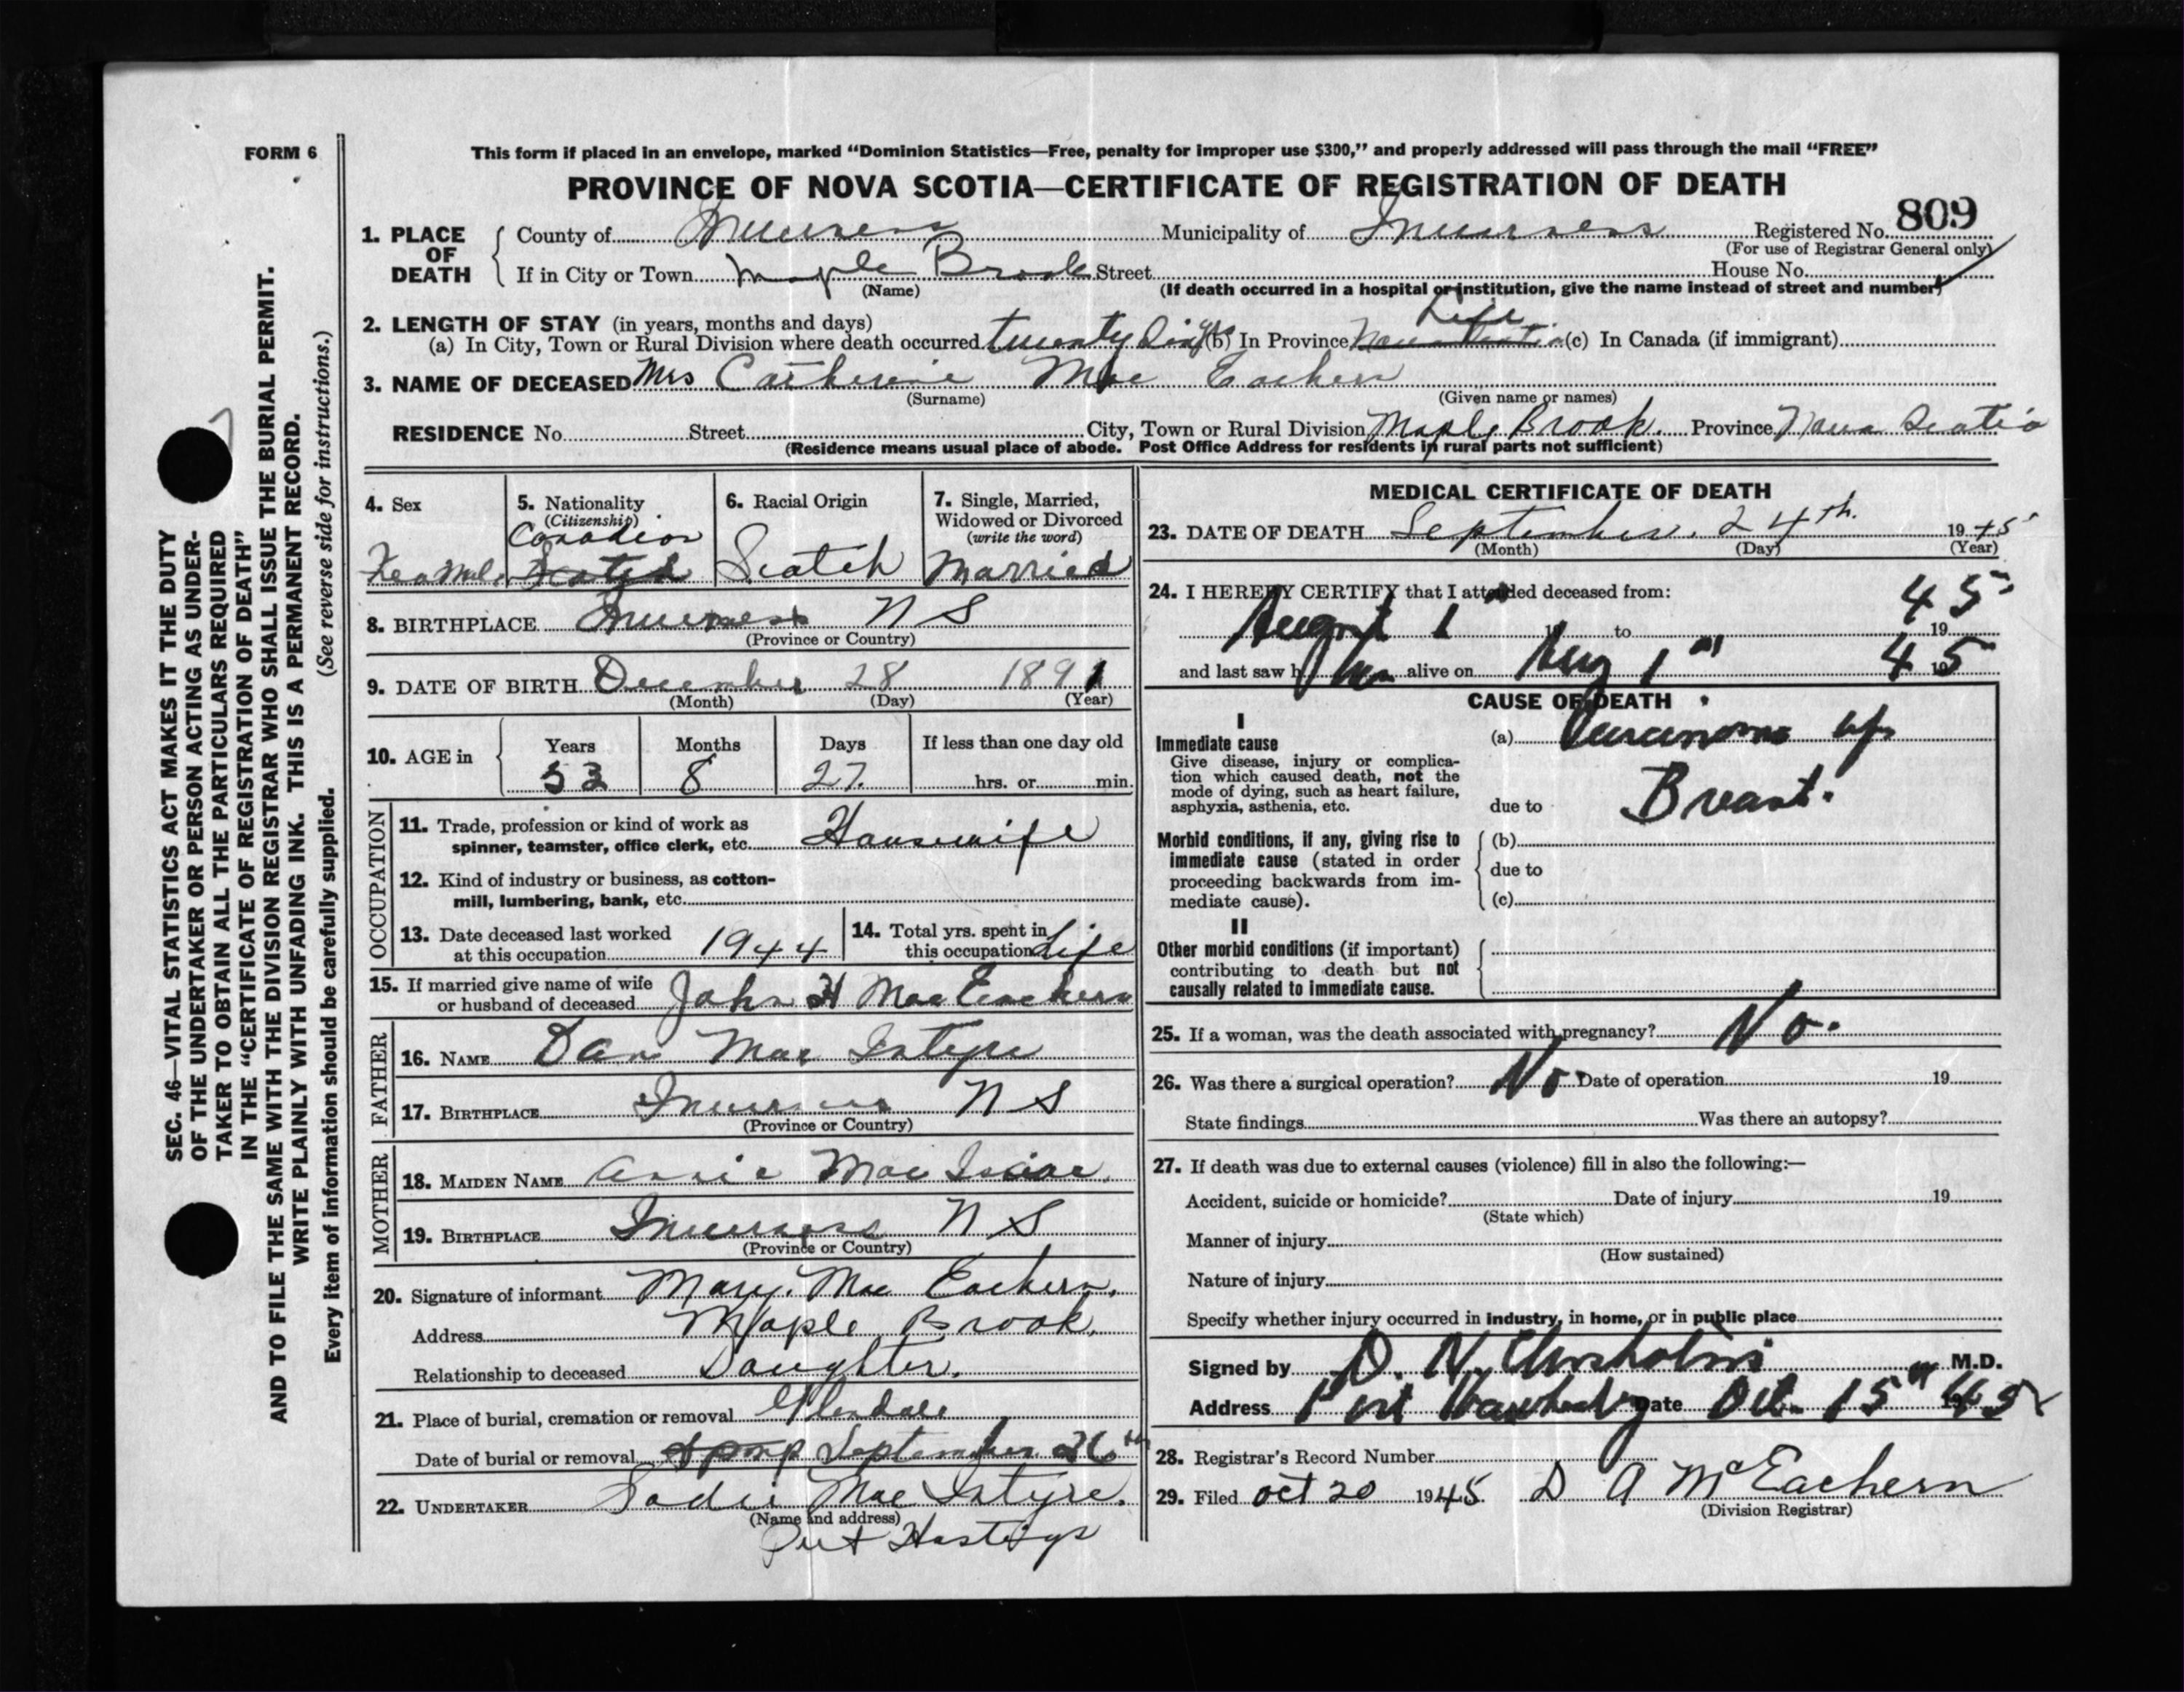 FORM 6
This form if placed in an envelope, marked “Dominion Statistics—Free, penalty for improper use $300,” and properly addressed will pass through the mail “FREE”
PROVINCE OF NOVA SCOTIA—CERTIFICATE OF REGISTRATION OF DEATH
1. PLACE OF DEATH
County of Inverness Municipality of Inverness Registered No. 809
(For use of Registrar General only)
If in City or Town Maple Brook Street House No.
(Name) (If death occurred in a hospital or institution, give the name instead of street and number)
2. LENGTH OF STAY (in years, months and days)
(a) In City, Town or Rural Division where death occurred twenty six yrs (b) In Province Nova Scotia Life (c) In Canada (if immigrant)
3. NAME OF DECEASED Mrs Catherine Mac Eachern
(Surname) (Given name or names)
RESIDENCE No. Street City, Town or Rural Division Maple Brook. Province Nova Scotia
(Residence means usual place of abode. Post Office Address for residents in rural parts not sufficient)
4. Sex
Feamale
5. Nationality
(Citizenship)
Canadian
Scotch
6. Racial Origin
Scotch
7. Single, Married,
Widowed or Divorced
(write the word)
Married
8. BIRTHPLACE Inverness N S
(Province or Country)
9. DATE OF BIRTH December 28 1891
(Month) (Day) (Year)
10. AGE in
Years Months Days If less than one day old
53 8 27. hrs. or min.
OCCUPATION
11. Trade, profession or kind of work as
spinner, teamster, office clerk, etc. Housewife
12. Kind of industry or business, as cotton-
mill, lumbering, bank, etc.
13. Date deceased last worked
at this occupation 1944
14. Total yrs. spent in
this occupation life
15. If married give name of wife
or husband of deceased John H MacEachern
FATHER
16. NAME Dan Mac Intyre
17. BIRTHPLACE Inverness N S
(Province or Country)
MOTHER
18. MAIDEN NAME Annie Mac Isaac.
19. BIRTHPLACE Inverness N S
(Province or Country)
20. Signature of informant Mary. Mac Eachern.
Address Maple Brook.
Relationship to deceased Daughter.
21. Place of burial, cremation or removal Glendale
Date of burial or removal September 26th
22. UNDERTAKER Sadie Mac Intyre.
(Name and address)
Port Hastings
MEDICAL CERTIFICATE OF DEATH
23. DATE OF DEATH September. 24th. 1945
(Month) (Day) (Year)
24. I HEREBY CERTIFY that I attended deceased from:
August 1st 19 to 1945
and last saw her alive on Aug 1st 1945
CAUSE OF DEATH
I
Immediate cause
Give disease, injury or complica-
tion which caused death, not the
mode of dying, such as heart failure,
asphyxia, asthenia, etc.
(a) Carcinoma of
due to Breast.
Morbid conditions, if any, giving rise to
immediate cause (stated in order
proceeding backwards from im-
mediate cause).
(b)
due to
(c)
II
Other morbid conditions (if important)
contributing to death but not
causally related to immediate cause.
25. If a woman, was the death associated with pregnancy? No.
26. Was there a surgical operation? No Date of operation 19
State findings Was there an autopsy?
27. If death was due to external causes (violence) fill in also the following:—
Accident, suicide or homicide? Date of injury 19
(State which)
Manner of injury
(How sustained)
Nature of injury
Specify whether injury occurred in industry, in home, or in public place
Signed by D. N. Chisholm M.D.
Address Port Hawkesbury Date Oct. 15th 1945
28. Registrar's Record Number
29. Filed Oct 20 1945 D A McEachern
(Division Registrar)
SEC. 46—VITAL STATISTICS ACT MAKES IT THE DUTY
OF THE UNDERTAKER OR PERSON ACTING AS UNDER-
TAKER TO OBTAIN ALL THE PARTICULARS REQUIRED
IN THE “CERTIFICATE OF REGISTRATION OF DEATH”
AND TO FILE THE SAME WITH THE DIVISION REGISTRAR WHO SHALL ISSUE THE BURIAL PERMIT.
WRITE PLAINLY WITH UNFADING INK. THIS IS A PERMANENT RECORD.
Every item of information should be carefully supplied. (See reverse side for instructions.)